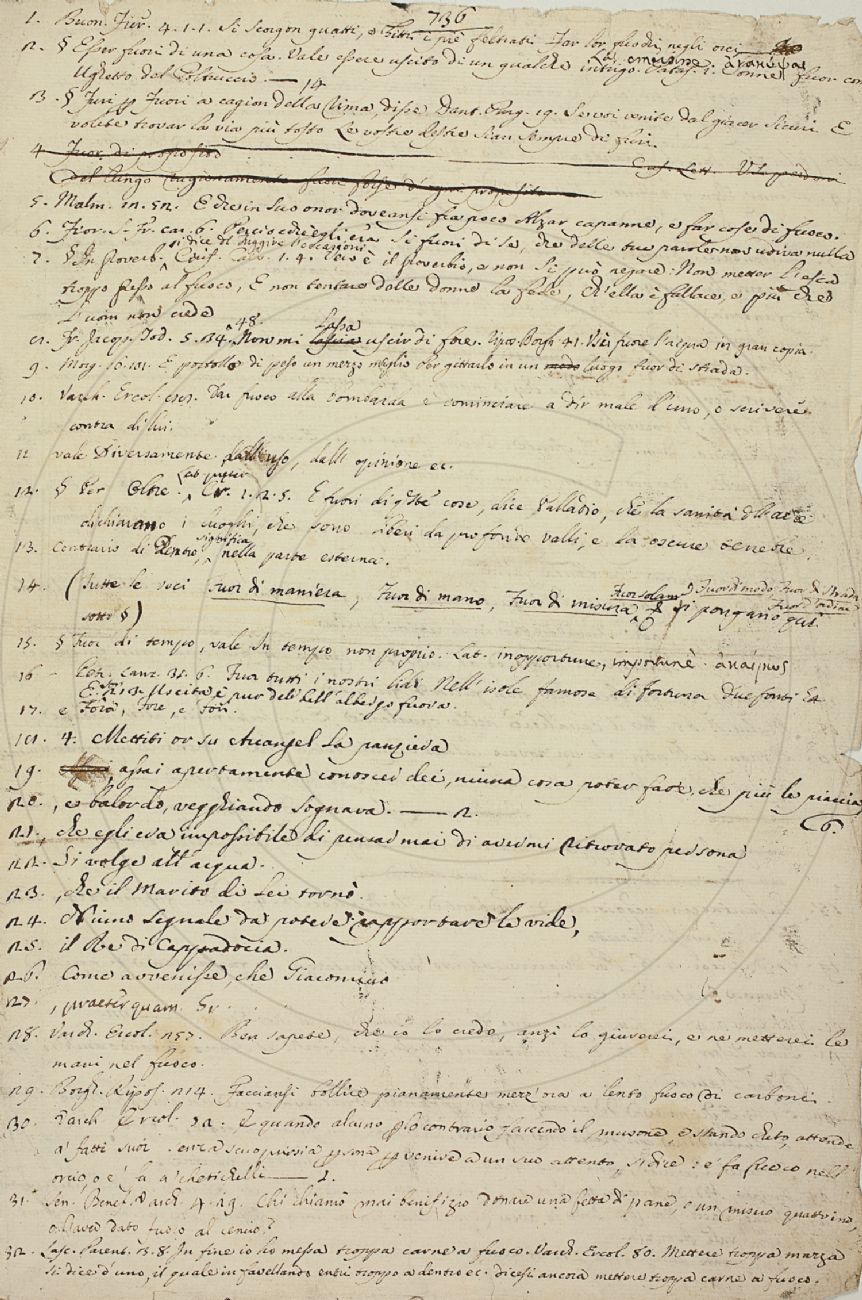 736
1. Buon. Fier. 4. 1. 1. Si scorgon quatti, e fitti i piè feltrati Far lor fuochi negli orci
2. § Esser fuori di una cosa. Vale essere uscito di un qualche intrigo. Lat. emergere. Pataff. 1. Donne fuor con
Ughetto del Coltruccio — 14
3. § Furi per Fuori a cagion della Rima, disse Dant. Purg. 19. Se voi venite dal giacer sicuri E
volete trovar la via più tosto Le vostre destre sian sempre di furi.
4 Fuor di proposito Cas. Lett.
del lungo ragionamento fuori forse d'ogni proposito
5. Malm. 10. 52. E che in suo onor doveansi fra poco Alzar capanne, e far cose di fuoco.
6. Fior. S. Fr. cap. 6. Perciocch'egli era si fuori di se, che delle sue parole non udiva nulla
si dice di fuggire l'occasioni
7. § In proverb. Ciriff. Calv. 1. 4. Vero è il proverbio, e non si può negare: Non metter l'esca
troppo presso al fuoco, E non tentare delle donne la fede, Ch'ella è fallace, e più che
l'uom non crede
8. Fr. Jacop. Tod. 5. 34. 48. Non mi lassa uscir di fore. Ripos. Borgh. 41. Uscì fuore l'acqua in gran copia.
9. Morg. 10. 101. E portollo di peso un mezzo miglio Per gittarlo in un luogo fuor di strada.
10. Varch. Ercol. Dar fuoco alla bombarda è cominciare a dir male d'uno, o scrivere
contra di lui.
11 vale Diversamente dall'uso, dall'opinione ec.
12. § Per Oltre. Lat. praeter Cr. 1. 2. 5. E fuori di queste cose, dice Palladio, che la sanità dell'aere
dichiarano i luoghi, che sono liberi da profonde valli, e da oscure tenebre,
13. Contrario di Dentro, significa nella parte esterna.
14. (Tutte le voci Fuor di maniera, Fuor di mano, Fuor di misura, Fuorsolamente, Fuor di modo, Fuor di strada Fuor d'ordine si pongano qui
sotto §)
15. § Fuor di tempo, vale In tempo non proprio. Lat. inopportune, importune. ἀκαίρως
16 - Petr. canz. 31. 6. Fuor tutti i nostri lidi Nell'isole famose di fortuna Due fonti ha
E Uscita è pur del bell'albergo fuora.
17. e Fora, Fore, e Fori.
18. 4. Mettiti or su Arcangel la panziera
19. , assai apertamente conoscer dei, niuna cosa poter fare che più le piaccia
20. , e balordo, vegghiando sognava. — 2. 6.
21. , che egli era impossibile di pensar mai di avermi ritrovato persona
22. Si volge all'acqua.
23. , che il Marito di Lei tornò.
24. Niuno segnale da potere rapportare le vide,
25. il Re di Cappadocia.
26. Come avvenisse, che Giacomino
27. , praeterquam. Gr.
28. Varch. Ercol. 257. Ben sapete, che io lo credo, anzi lo giurerei, e ne metterei le
mani nel fuoco.
29. Borgh. Ripos. 214. Facciansi bollire pianamente mezz'ora a lento fuoco di carboni.
30. Varch Ercol. 92. E quando alcuno per lo contrario facendo il musone, e stando cheto, attende
a' fatti suoi per venire a un suo attento, si dice: e' fa fuoco nell'
orcio, o e' fa a' chetichelli — 1.
31. Sen. Benef. Varch. 4. 29. Chi chiamò mai benifizio donare una fetta di pane, o un misero quattrino,
o l'aver dato fuoco al cencio?
32. Lasc. Parent. 3. 8. In fine io ho messa troppa carne a fuoco. Varch. Ercol. 80. Mettere troppa mazza
si dice d'uno, il quale in favellando entri troppo a dentro ec. dicesi ancora mettere troppa carne a fuoco.